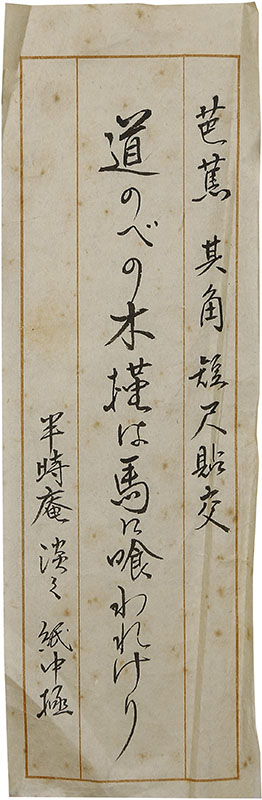 芭蕉 其角 短尺貼交
道のべの木槿は馬に喰われけり
半時庵 淡々 紙中極